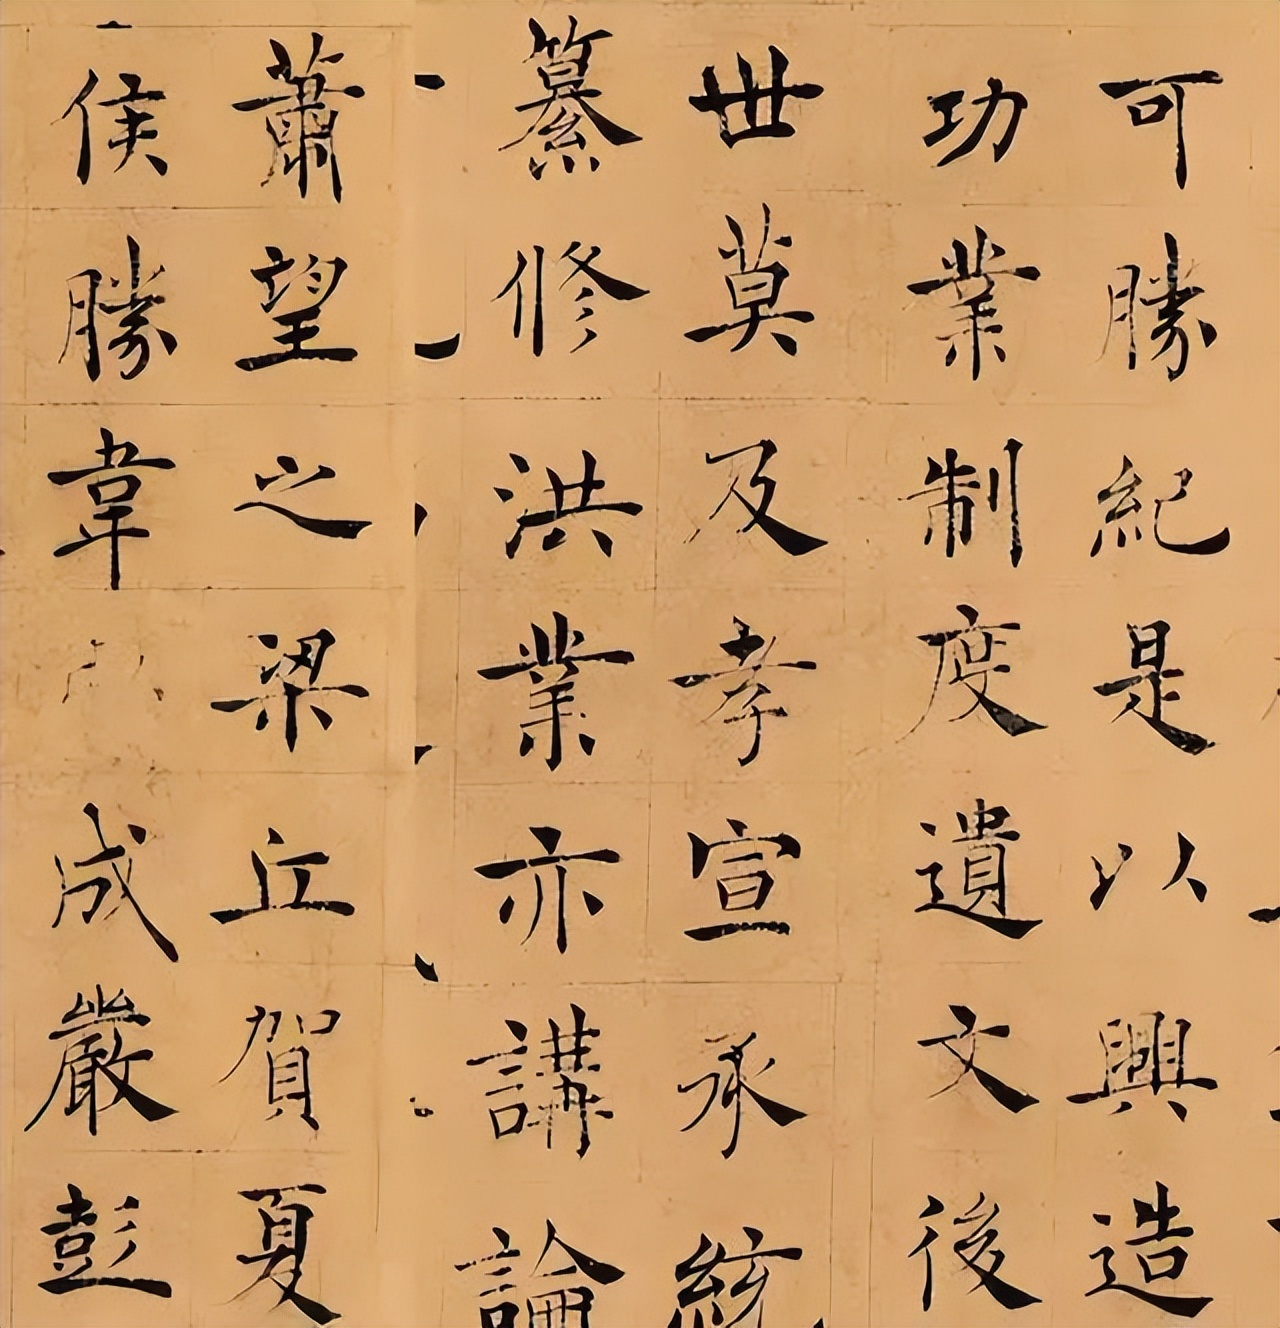 可勝紀是以興造
功業制度遺文後
世莫及孝宣承統
纂修洪業亦講論
蕭望之梁丘賀夏
侯勝韋成嚴彭